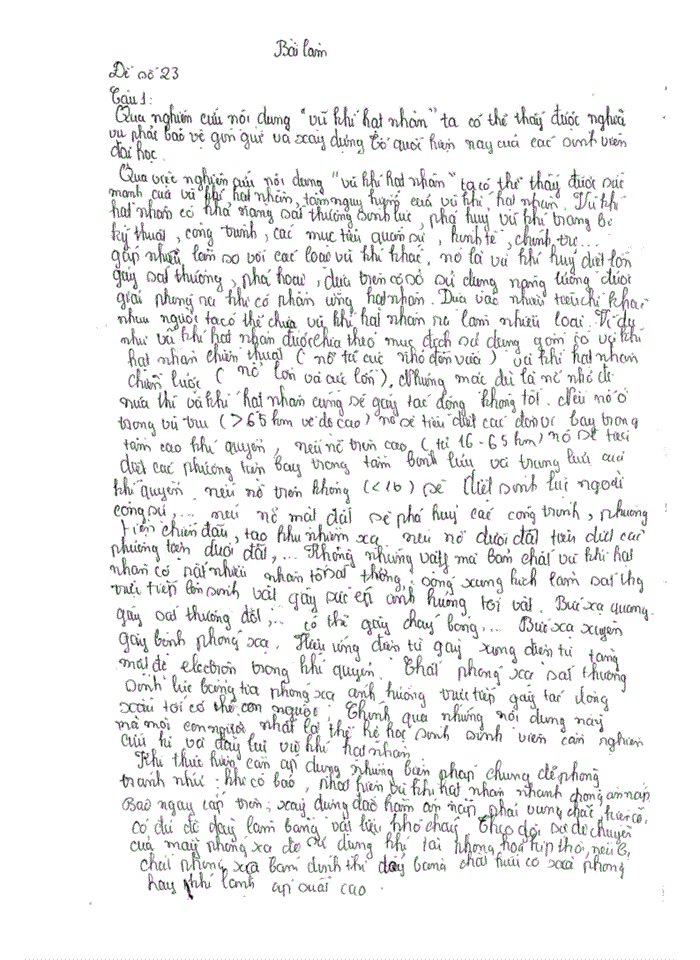 Bài làm
Đề số 23
Câu 1:
Qua nghiên cứu nội dung "vũ khí hạt nhân" ta có thể thấy được nghĩa
vụ phải bảo vệ gìn giữ và xây dựng Tổ quốc hiện nay của các sinh viên
đại học.
Qua việc nghiên cứu nội dung "vũ khí hạt nhân" ta có thể thấy được sức
mạnh của vũ khí hạt nhân, tầm nguy hiểm của vũ khí hạt nhân. Vũ khí
hạt nhân có khả năng sát thương sinh lực, phá huỷ vũ khí trang bị
kỹ thuật, công trình, các mục tiêu quân sự, kinh tế, chính trị...
gấp nhiều lần so với các loại vũ khí khác, nó là vũ khí huỷ diệt lớn
gây sát thương, phá hoại, dựa trên cơ sở sử dụng năng lượng được
giải phóng ra khi có phản ứng hạt nhân. Dựa vào nhiều tiêu chí khác
nhau người ta có thể chia vũ khí hạt nhân ra làm nhiều loại. Ví dụ
như vũ khí hạt nhân được chia theo mục đích sử dụng gồm có vũ khí
hạt nhân chiến thuật (nổ từ cực nhỏ đến vừa) vũ khí hạt nhân
chiến lược (nổ lớn và cực lớn). Nhưng mặc dù là nổ nhỏ đi
nữa thì vũ khí hạt nhân cũng sẽ gây tác động không tốt. Nếu nổ ở
trong vũ trụ (>65 km về độ cao) nó sẽ tiêu diệt các đơn vị bay trong
tầm cao khí quyển, nếu nổ trên cao (từ 16-65 km) nó sẽ tiêu
diệt các phương tiện bay trong tầm bình lưu và trung lưu của
khí quyển. nếu nổ trên không (<16) sẽ diệt sinh lực ngoài
công sự,... nếu nổ mặt đất sẽ phá huỷ các công trình, phương
tiện chiến đấu, tạo khu nhiễm xạ, nếu nổ dưới đất tiêu diệt các
phương tiện dưới đất,... Không những vậy mà bản chất vũ khí hạt
nhân có rất nhiều nhân tố sát thương: sóng xung kích làm sát thg
trực tiếp lên sinh vật gây sức ép ảnh hưởng tới vật. Bức xạ quang
gây sát thương đốt,... có thể gây cháy bỏng... Bức xạ xuyên
gây bệnh phóng xạ. Hiệu ứng điện từ gây xung điện từ tăng
mật độ electron trong khí quyển. Chất phóng xạ sát thương
sinh lực bằng tia phóng xạ ảnh hưởng trực tiếp gây tác động
xấu tới cơ thể con người. Chính qua những nội dung này
mà mọi con người nhất là thế hệ học sinh sinh viên cần nghiên
cứu kĩ và đẩy lùi vũ khí hạt nhân
Khi thực hiện cần áp dụng những biện pháp chung đề phòng
tránh như: khi có báo, phát hiện vũ khí hạt nhân nhanh chóng ẩn nấp
Báo ngay cấp trên; xây dựng hầm ẩn nấp phải vững chắc, kiên cố,
có đủ độ dày làm bằng vật liệu khó cháy. Theo dõi sự di chuyển
của mây phóng xạ để sử dụng khí tài phòng hoá kịp thời, nếu bị
chất phóng xạ bám dính thì tẩy bằng chất tẩy có xà phòng
hay khí lạnh áp suất cao.